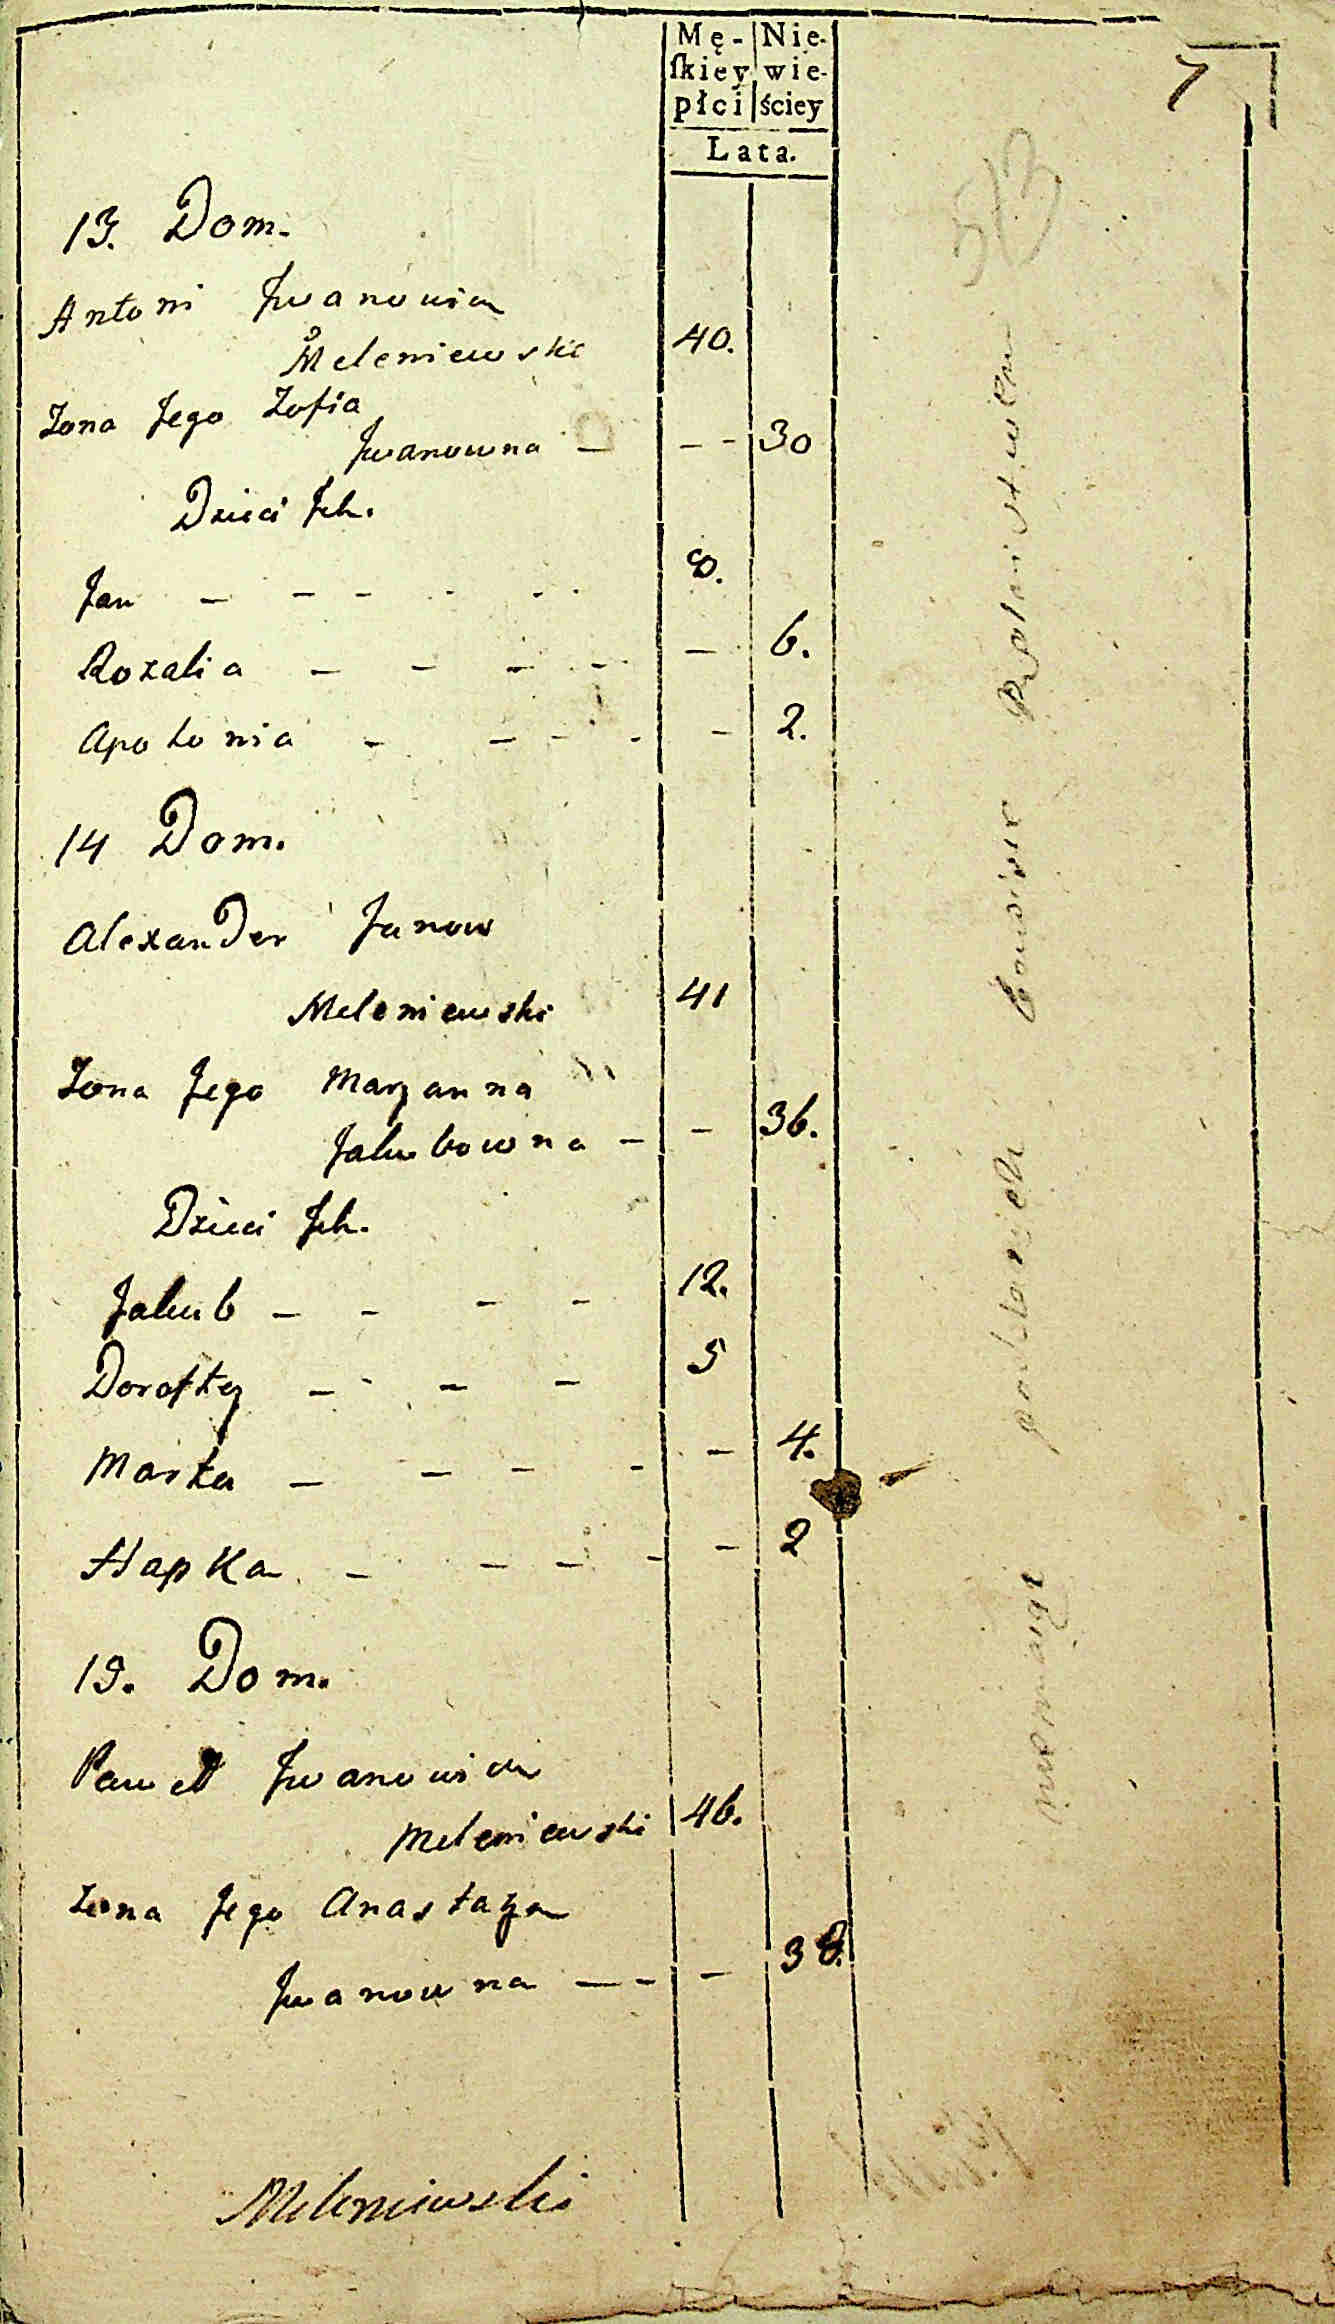 Mę- Nie-
ſkiey wie-
płci ściey
Lata.
7
13. Dom.
Antoni Jwanowicz
Meleniewski 40.
Zona Jego Zofia
Jwanowna - - - 30
Dzieci Jch.
Jan - - - - - - 8.
Rozalia - - - - - 6.
Apolonia - - - - - 2.
14 Dom.
Alexander Janow
Meleniewski 41
Zona Jego Maryanna
Jakubowna - - 36.
Dzieci Jch.
Jakub - - - - 12.
Doroftey - - - - 5
Marta - - - - - 4.
Hapka - - - - - 2
19. Dom.
Paweł Jwanowicz
Meleniewski 46.
Zona Jego Anastazya
Jwanowna - - - 38.
Meleniewski
513